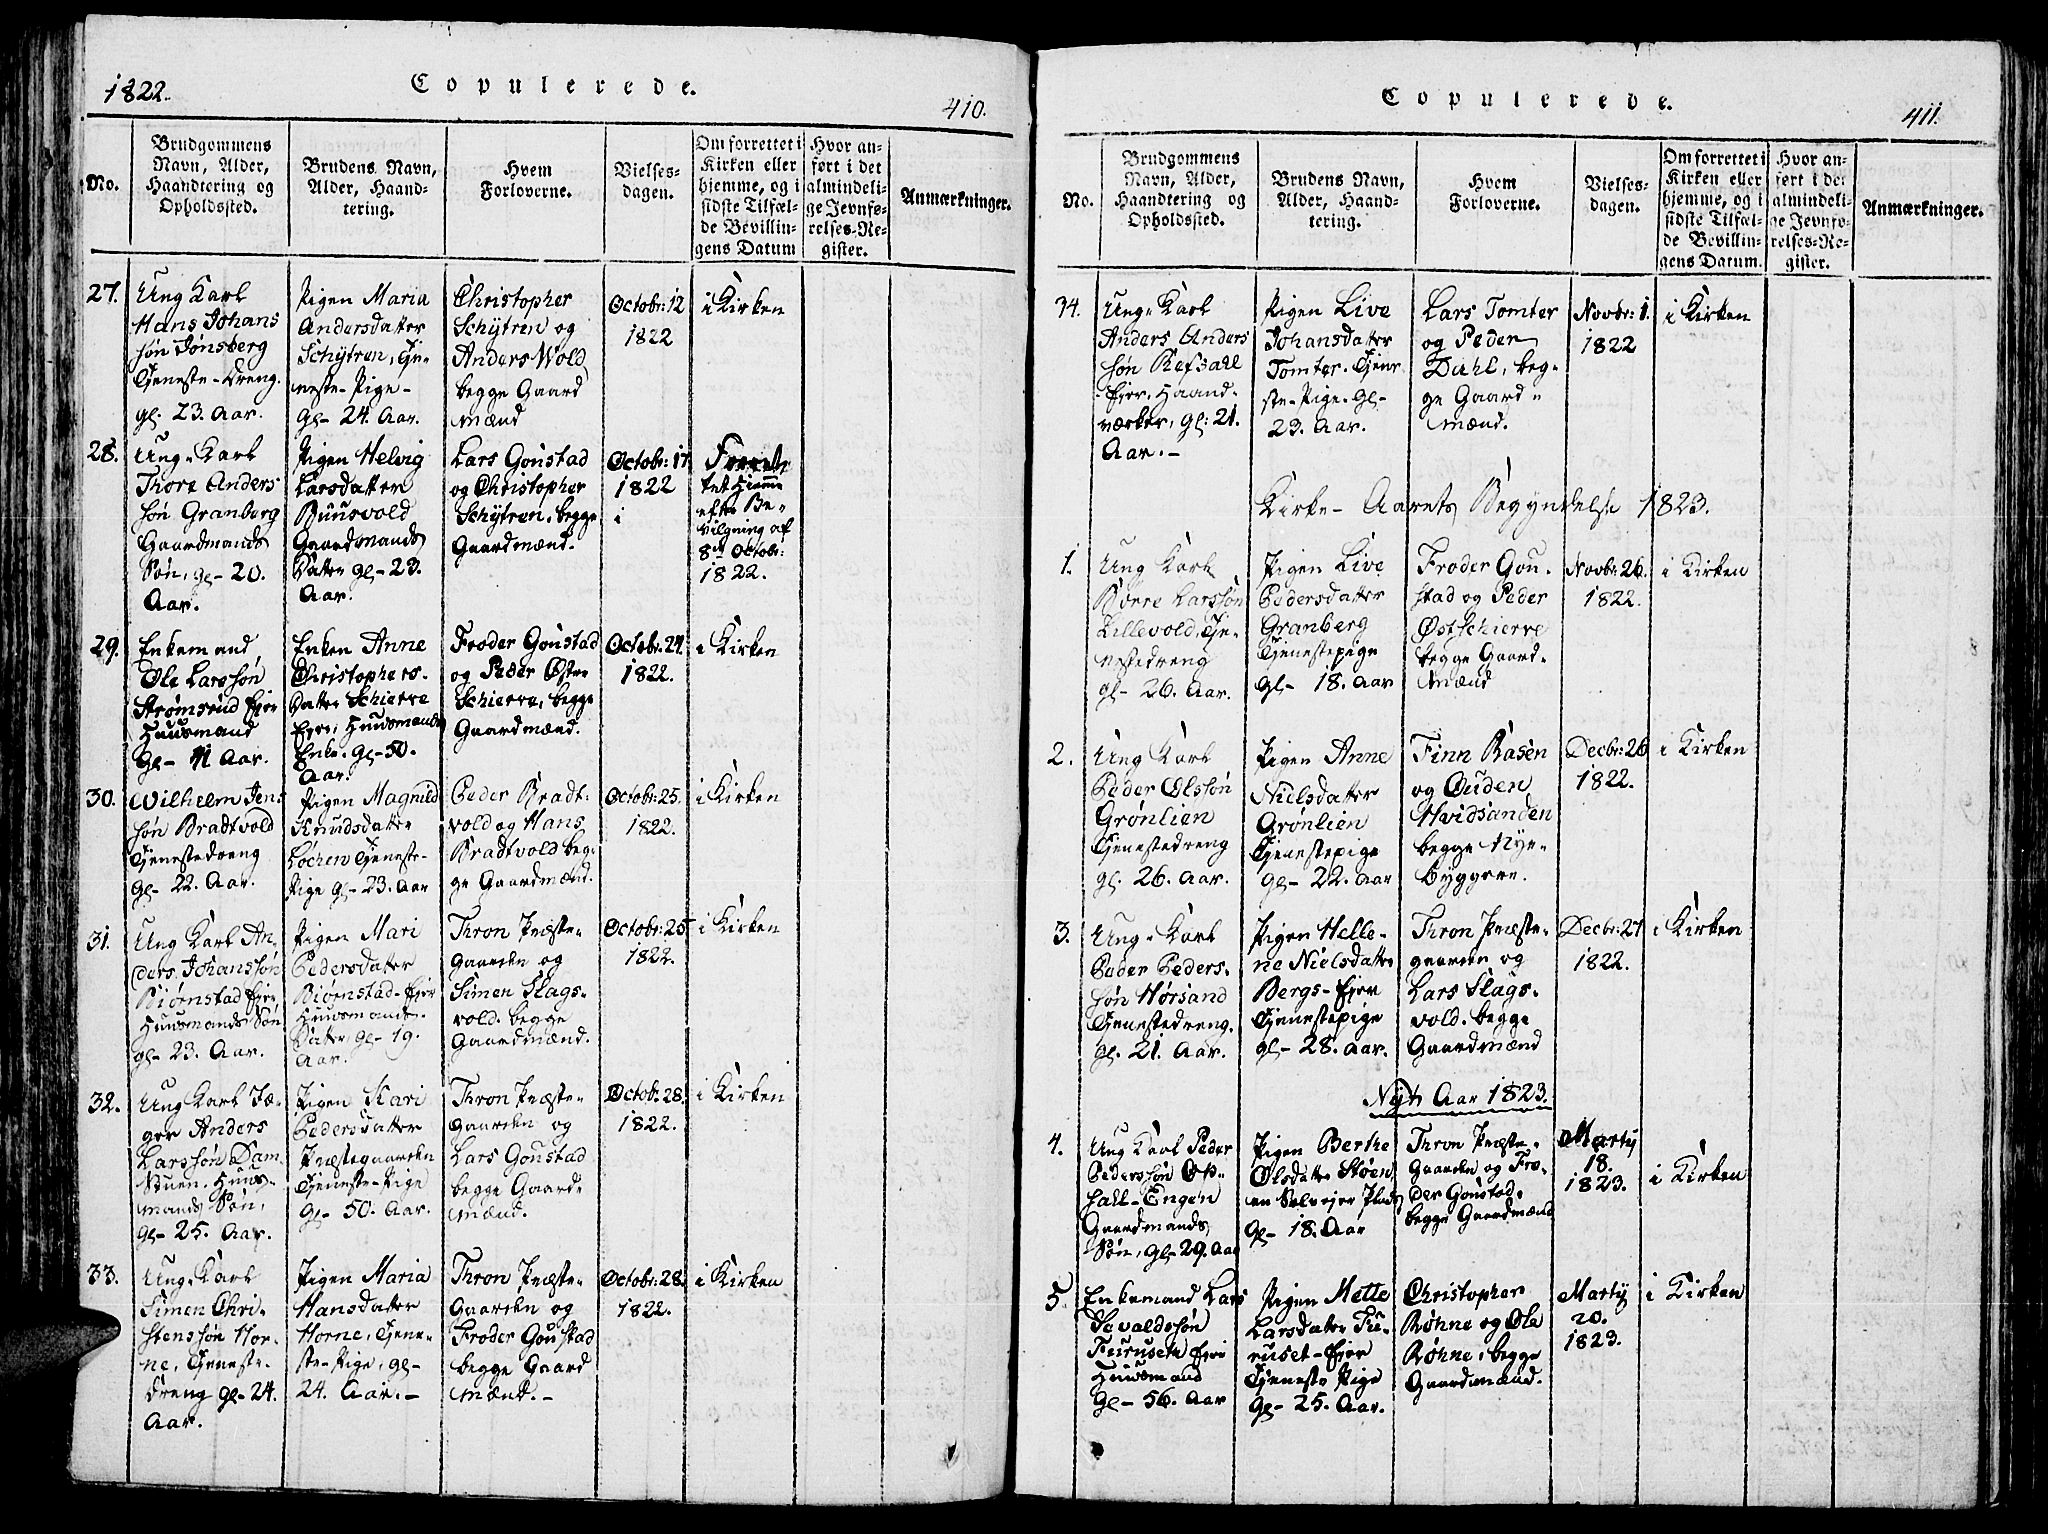 1822.
Copulerede.
410.
No.
Brudgommens
Navn, Alder,
Haandtering og
Opholdssted.
Brudens Navn,
Alder, Haand-
tering.
Hvem
Forloverne.
Vielses-
dagen.
Om forrettet i
Kirken eller
hjemme, og i
sidste Tilfæl-
de Bevillin-
gens Datum
Hvor an-
ført i det
almindeli-
ge Jevnfø-
relses-Re-
gister.
Anmærkninger.
27.
Ung Karl
Hans Johans
søn Jønsberg
Tjeneste-Dreng.
gl. 23. Aar.
Pigen Maria
Andersdatter
Schÿtren, Tje-
neste-Pige-
Gl- 24. Aar.
Christopher
Schÿtren og
Anders Wold
begge Gaard
mænd
Octobr: 12
1822
i Kirken
28.
Ung-Karl
Thore Anders
søn Granberg
Gaardmands
Søn, gl- 20.
Aar.
Pigen Helvig
Larsdatter
Buusvold
Gaardmands
Datter gl- 23.
Aar.
Lars Goustad
og Christopher
Schÿtren, begge
Gaardmænd.
Octobr: 17
1822
i
Forrette
tet Hiemme
efter Be-
vilgning af
8de Octobr:
1822.
29.
Enkemand,
Ole Larssøn
Strømsrud Ejer
Huusmand
Gl- 41 Aar.
Enken Anne
Christophers-
datter Schierre
Ejer, Huusmands
Enke. Gl- 50.
Aar.
Froder Goustad
og Peder Østre
Schierre, begge
Gaardmænd.
Octobr: 24.
1822.
i Kirken
30.
Wilhelm Jen-
søn Bradtvold
Tjenestedreng
Gl- 22. Aar.
Pigen Magnild
Knudsdatter
Løchen Tjeneste-
Pige gl- 23. Aar
Peder Bradt-
vold og Hans
Bradtvold beg-
ge Gaardmænd.
Octobr: 25.
1822.
i Kirken
31.
Ung Karl An-
ders. Johanssøn
Biørnstad Ejer
Huusmands Søn
gl- 23. Aar.
Pigen Mari
Pedersdatter
Biørnstad-Ejer
Huusmands-
Datter, Gl- 19.
Aar.
Thron Præste-
gaarden og
Simen Slags-
vold. begge
Gaardmænd.
Octobr: 25
1822.
i Kirken
32.
Ung Karl Jæ-
ger Anders
Larssøn Dam-
stuen. Huus-
mands Søn,
gl- 25. Aar.
Pigen Kari
Pedersdatter
Præstegaarden
Tjeneste-Pige
Gl- 50. Aar.
Thron Præste-
Gaarden og
Lars Goustad
begge Gaard-
mænd.
Octobr: 28.
1822.
i Kirken
33.
Ung-Karl
Simen Chri-
stenssøn Hor-
ne, Tjeneste-
Dreng gl- 24.
Aar.
Pigen Maria
Hansdatter
Horne, Tjene-
ste-Pige, gl-
24. Aar.-
Thron Præste-
Gaarden og
Froder Goustad
begge Gaard
mænd.-
Octobr: 28.
1822.
i Kirken
Copulerede.
411.
No.
Brudgommens
Navn, Alder,
Haandtering og
Opholdssted.
Brudens Navn,
Alder, Haand-
tering.
Hvem
Forloverne.
Vielses-
dagen.
Om forrettet i
Kirken eller
hjemme, og i
sidste Tilfæl-
de Bevillin-
gens Datum.
Hvor an-
ført i det
almindeli-
ge Jevnfø-
relses-Re-
gister.
Anmærkninger.
34.
Ung-Karl
Anders Anders
søn Refsahl
Ejer. Haand-
værker, Gl: 21.
Aar.-
Pigen Live
Johansdatter
Tomter. Tjene-
ste-Pige. Gl-
23. Aar.
Lars Tomter
og Peder
Dahl, beg-
ge Gaard-
mænd.
Novbr: 1.
1822
i Kirken
Kirke- Aarets Begyndelse 1823.
1.
Ung Karl
Børre Larssøn
Lillevold, Tje-
nestedreng
gl- 26. Aar.
Pigen Live
Pedersdatter
Granberg
Tjenestepige
Gl- 18. Aar
Froder Gou-
stad og Peder
Øst Schierre
begge Gaard-
mænd
Novbr: 26.
1822.
i Kirken
2.
Ung Karl
Peder Olssøn
Grønlien
Tjenestedreng
gl. 26. Aar.
Pigen Anne
Nielsdatter
Grønlien
Tjenestepige
gl- 22. Aar
Finn Rasen
og Ouden
Hvidsanden
begge Nye-
Byggere.
Decbr: 26
1822.
i Kirken
3.
Ung-Karl
Peder Peders-
søn Hørsand
Tjenestedreng.
gl. 21. Aar.
Pigen Helle-
ne Nielsdatter
Bergs-Ejer
Tjenestepige
gl- 28. Aar.
Thron Præste-
gaarden og
Lars Slags-
vold. begge
Gaardmænd
Decbr: 27
1822.
i Kirken
Nyt Aar 1823.
4.
Ung Karl Peder
Pederssøn Op-
hall-Engen
Gaardmands
Søn, Gl- 29. Aar
Pigen Berthe
Olsdatter Støen
en Selvejer Plads
Gl- 18. Aar
Thron Præste-
Gaarden og Fro-
der Goustad,
begge Gaardmænd
Martÿ
18.
1823.
i Kirken
5.
Enkemand Lars
Sevaldssøn
Furuseth Ejer
Huusmand
Gl- 56. Aar
Pigen Mette
Larsdatter Fu-
ruset-Ejer
Tjeneste Pige
Gl- 25. Aar.
Christopher
Røhne og Ole
Røhne, begge
Gaardmænd.
Martÿ
20.
1823.
i Kirken